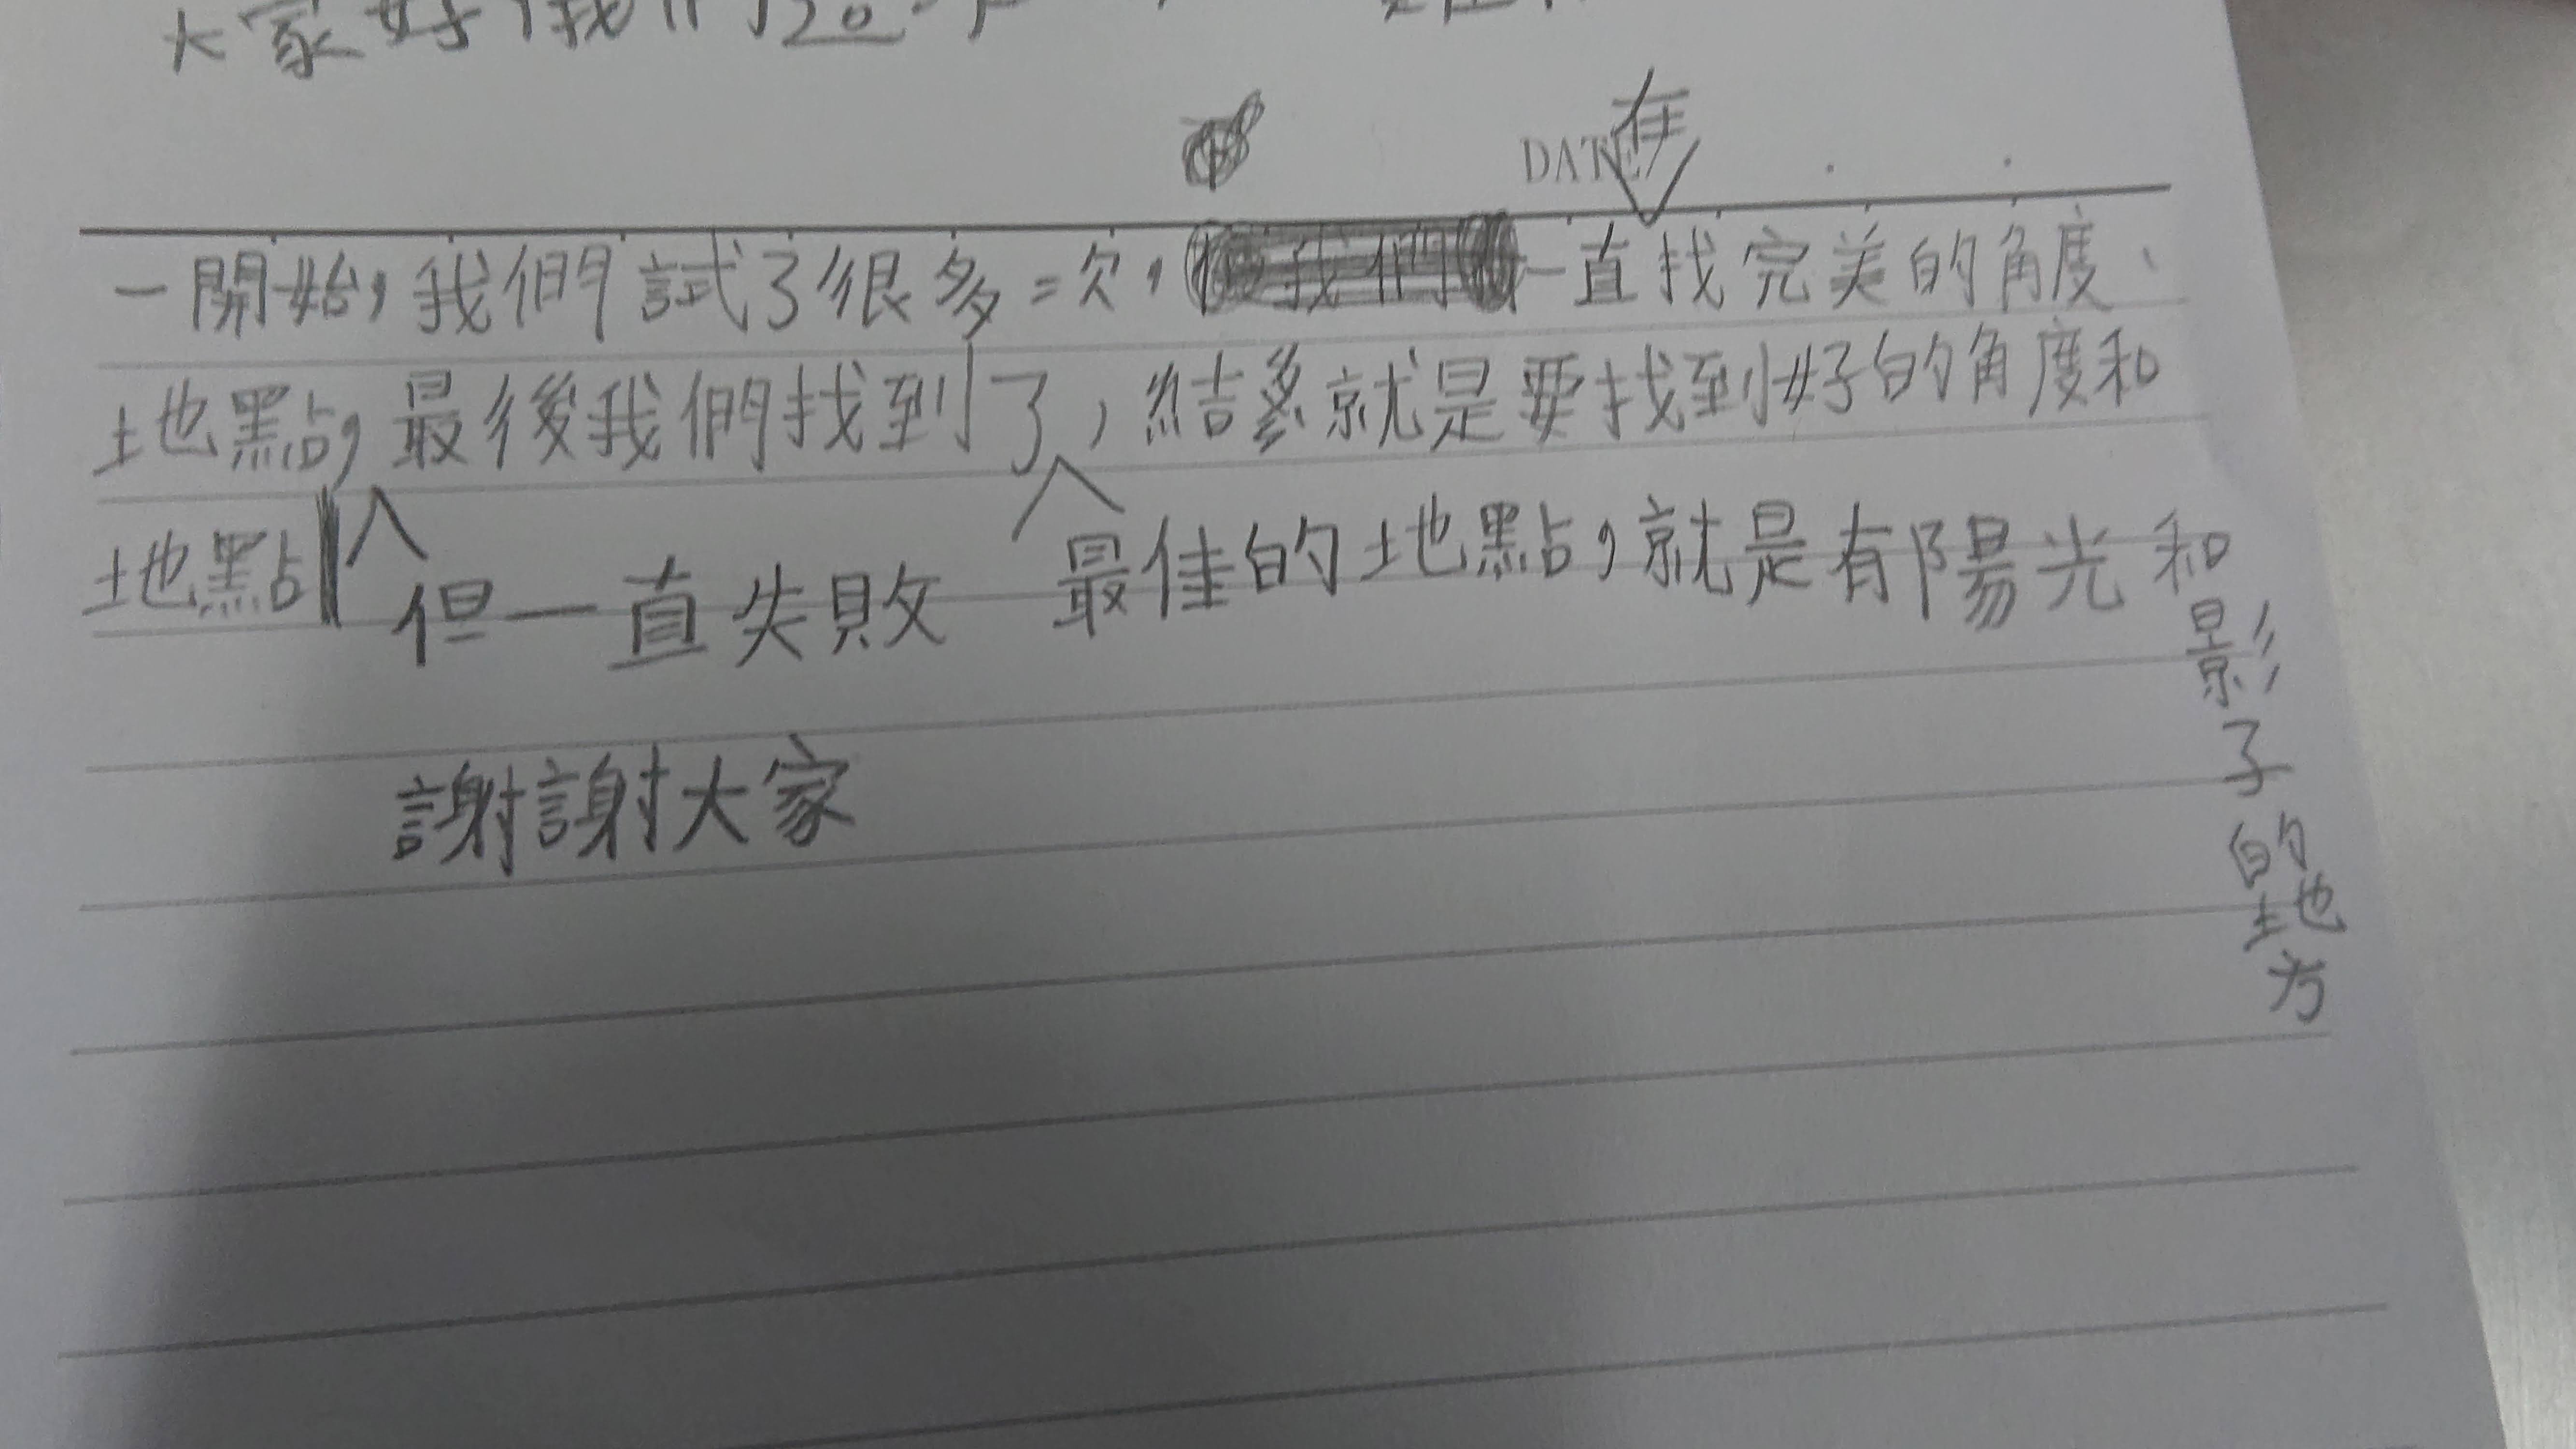 大家好我們是
在
DATE
一開始，我們試了很多次，一直找完美的角度、
地點，最後我們找到了，結多就是要找到好的角度和
地點
但一直失敗
最佳的地點，就是有陽光和
影子的地方
謝謝大家